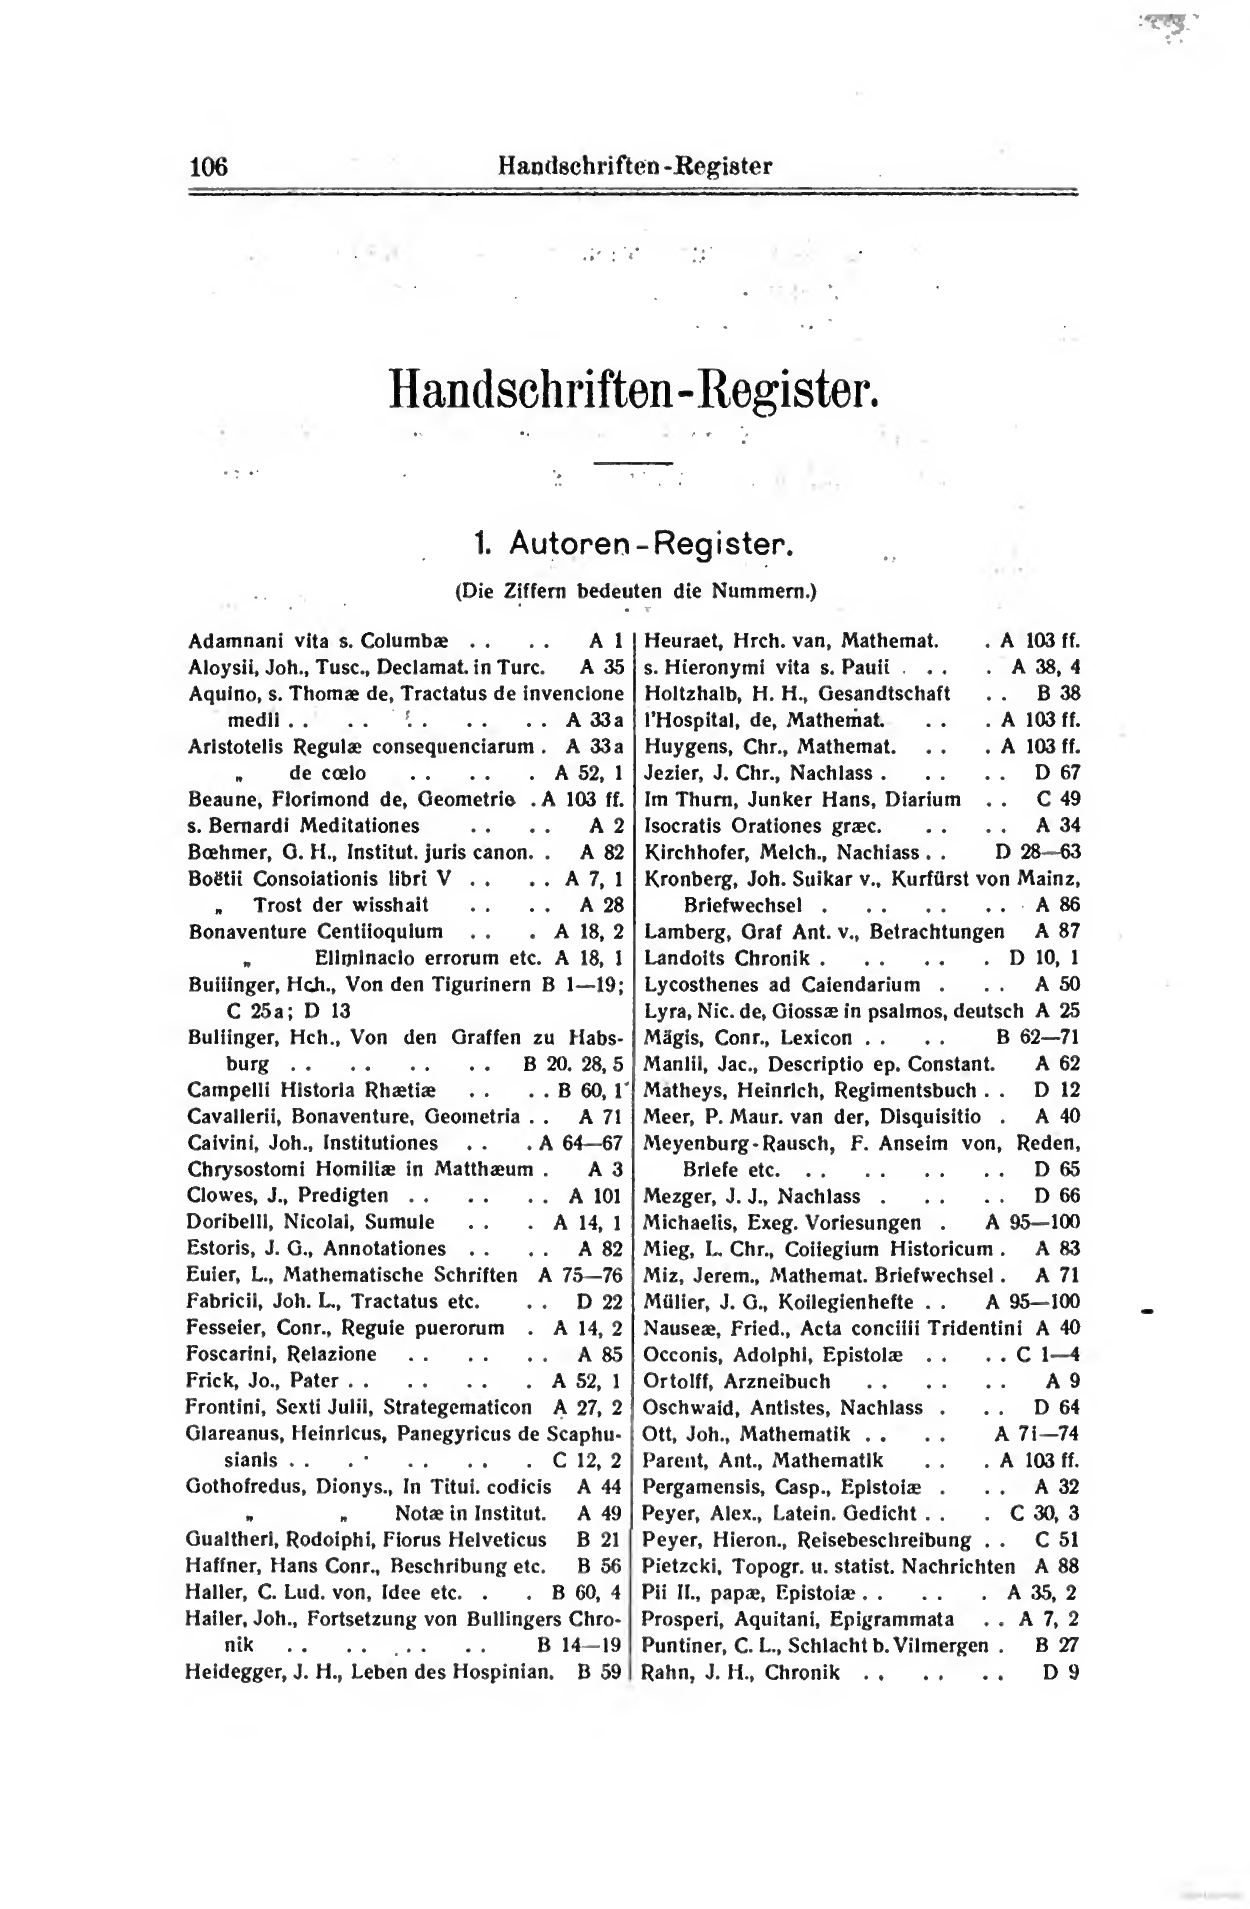 106 Handschriften-Register
Handschriften-Register.
1. Autoren-Register.
(Die Ziffern bedeuten die Nummern.)
Adamnani vita s. Columbæ . . . . A 1
Aloysii, Joh., Tusc., Declamat. in Turc. A 35
Aquino, s. Thomæ de, Tractatus de invencione
medii . . . . . . . . . . A 33a
Aristotelis Regulæ consequenciarum . A 33a
„ de cœlo . . . . . A 52, 1
Beaune, Florimond de, Geometrie . A 103 ff.
s. Bernardi Meditationes . . . . A 2
Bœhmer, G. H., Institut. juris canon. . A 82
Boëtii Consolationis libri V . . . . A 7, 1
„ Trost der wisshait . . . . A 28
Bonaventure Centiloquium . . . A 18, 2
„ Eliminacio errorum etc. A 18, 1
Bullinger, Hch., Von den Tigurinern B 1—19;
C 25a; D 13
Bullinger, Hch., Von den Graffen zu Habs-
burg . . . . . . . . B 20. 28, 5
Campelli Historia Rhætiæ . . . . B 60, 1
Cavallerii, Bonaventure, Geometria . . A 71
Calvini, Joh., Institutiones . . . A 64—67
Chrysostomi Homiliæ in Matthæum . A 3
Clowes, J., Predigten . . . . . . A 101
Doribelli, Nicolai, Sumule . . . A 14, 1
Estoris, J. G., Annotationes . . . . A 82
Euler, L., Mathematische Schriften A 75—76
Fabricii, Joh. L., Tractatus etc. . . D 22
Fesseler, Conr., Regule puerorum . A 14, 2
Foscarini, Relazione . . . . . . A 85
Frick, Jo., Pater . . . . . . . A 52, 1
Frontini, Sexti Julii, Strategematicon A 27, 2
Glareanus, Heinricus, Panegyricus de Scaphu-
sianis . . . . . . . . . C 12, 2
Gothofredus, Dionys., In Titul. codicis A 44
„ „ Notæ in Institut. A 49
Gualtheri, Rodolphi, Florus Helveticus B 21
Haffner, Hans Conr., Beschribung etc. B 56
Haller, C. Lud. von, Idee etc. . . B 60, 4
Haller, Joh., Fortsetzung von Bullingers Chro-
nik . . . . . . . . B 14—19
Heidegger, J. H., Leben des Hospinian. B 59
Heuraet, Hrch. van, Mathemat. . A 103 ff.
s. Hieronymi vita s. Pauli . . . . A 38, 4
Holtzhalb, H. H., Gesandtschaft . . B 38
l'Hospital, de, Mathemat. . . . A 103 ff.
Huygens, Chr., Mathemat. . . . A 103 ff.
Jezler, J. Chr., Nachlass . . . . . D 67
Im Thurn, Junker Hans, Diarium . . C 49
Isocratis Orationes græc. . . . . A 34
Kirchhofer, Melch., Nachlass . . D 28—63
Kronberg, Joh. Suikar v., Kurfürst von Mainz,
Briefwechsel . . . . . . . A 86
Lamberg, Graf Ant. v., Betrachtungen A 87
Landolts Chronik . . . . . . D 10, 1
Lycosthenes ad Calendarium . . . A 50
Lyra, Nic. de, Glossæ in psalmos, deutsch A 25
Mägis, Conr., Lexicon . . . . B 62—71
Manlii, Jac., Descriptio ep. Constant. A 62
Matheys, Heinrich, Regimentsbuch . . D 12
Meer, P. Maur. van der, Disquisitio . A 40
Meyenburg-Rausch, F. Anselm von, Reden,
Briefe etc. . . . . . . . . D 65
Mezger, J. J., Nachlass . . . . . D 66
Michaelis, Exeg. Vorlesungen . A 95—100
Mieg, L. Chr., Collegium Historicum . A 83
Miz, Jerem., Mathemat. Briefwechsel . A 71
Müller, J. G., Kollegienhefte . . A 95—100
Nauseæ, Fried., Acta concilii Tridentini A 40
Occonis, Adolphi, Epistolæ . . . . C 1—4
Ortolff, Arzneibuch . . . . . . A 9
Oschwald, Antistes, Nachlass . . . D 64
Ott, Joh., Mathematik . . . . A 71—74
Parent, Ant., Mathematik . . . A 103 ff.
Pergamensis, Casp., Epistolæ . . . A 32
Peyer, Alex., Latein. Gedicht . . . C 30, 3
Peyer, Hieron., Reisebeschreibung . . C 51
Pletzcki, Topogr. u. statist. Nachrichten A 88
Pii II., papæ, Epistolæ . . . . . A 35, 2
Prosperi, Aquitani, Epigrammata . . A 7, 2
Puntiner, C. L., Schlacht b. Vilmergen . B 27
Rahn, J. H., Chronik . . . . . . D 9